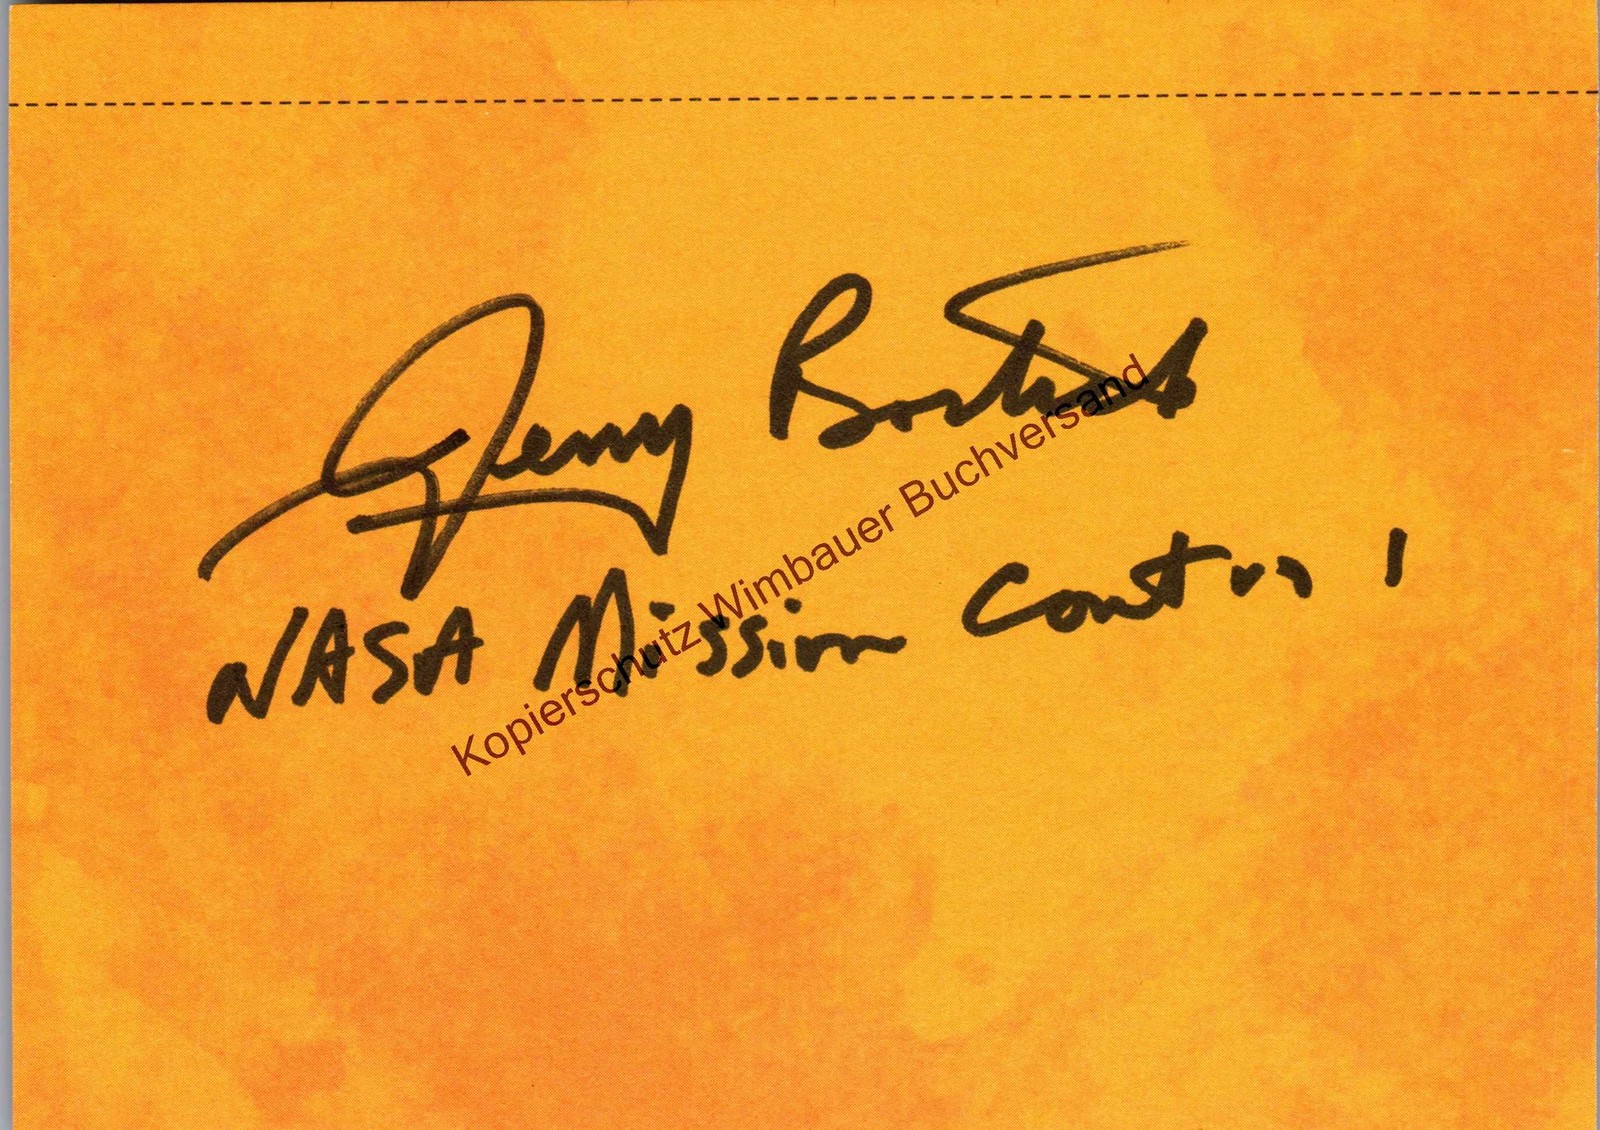 Jerry Bostick
NASA Mission Control
Kopierschutz Wimbauer Buchversand